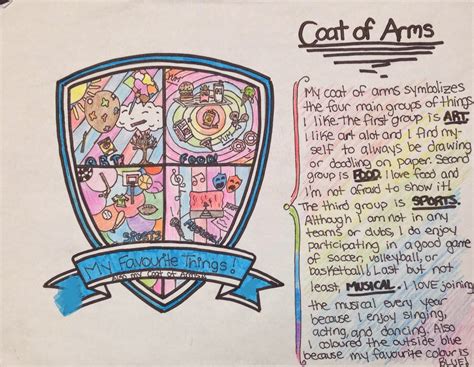 Coat of Arms
My coat of arms symbolizes
the four main groups of things
I like. The first group is ART.
I like art alot and I find my-
self to always be drawing
or doodling on paper. Second
group is FOOD. I love food and
I'm not afraid to show it!
The third group is SPORTS.
Although I am not in any
teams or clubs, I do enjoy
participating in a good game
of soccer, volleyball, or
basketball. Last but not
least, MUSICAL. I love joining
the musical every year
because I enjoy singing,
acting, and dancing. Also
I coloured the outside blue
because my favourite colour is
BLUE!
YUM
ART
FOOD
SPORTS
My Favourite Things!
Also my Coat of Arms!